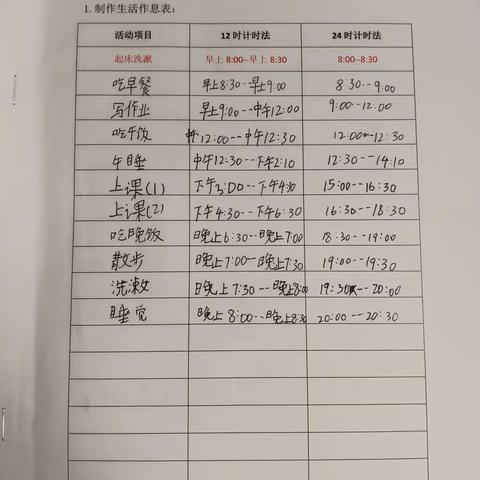 1. 制作生活作息表：
活动项目 12 时计时法 24 时计时法
起床洗漱 早上 8:00--早上 8:30 8:00--8:30
吃早餐 早上8:30--早上9:00 8:30--9:00
写作业 早上9:00--中午12:00 9:00--12:00
吃午饭 中午12:00--中午12:30 12:00--12:30
午睡 中午12:30--下午2:10 12:30--14:10
上课(1) 下午3:00--下午4:30 15:00--16:30
上课(2) 下午4:30--下午6:30 16:30--18:30
吃晚饭 晚上6:30--晚上7:00 18:30--19:00
散步 晚上7:00--晚上7:30 19:00--19:30
洗漱 晚上7:30--晚上8:00 19:30--20:00
睡觉 晚上8:00--晚上8:30 20:00--20:30